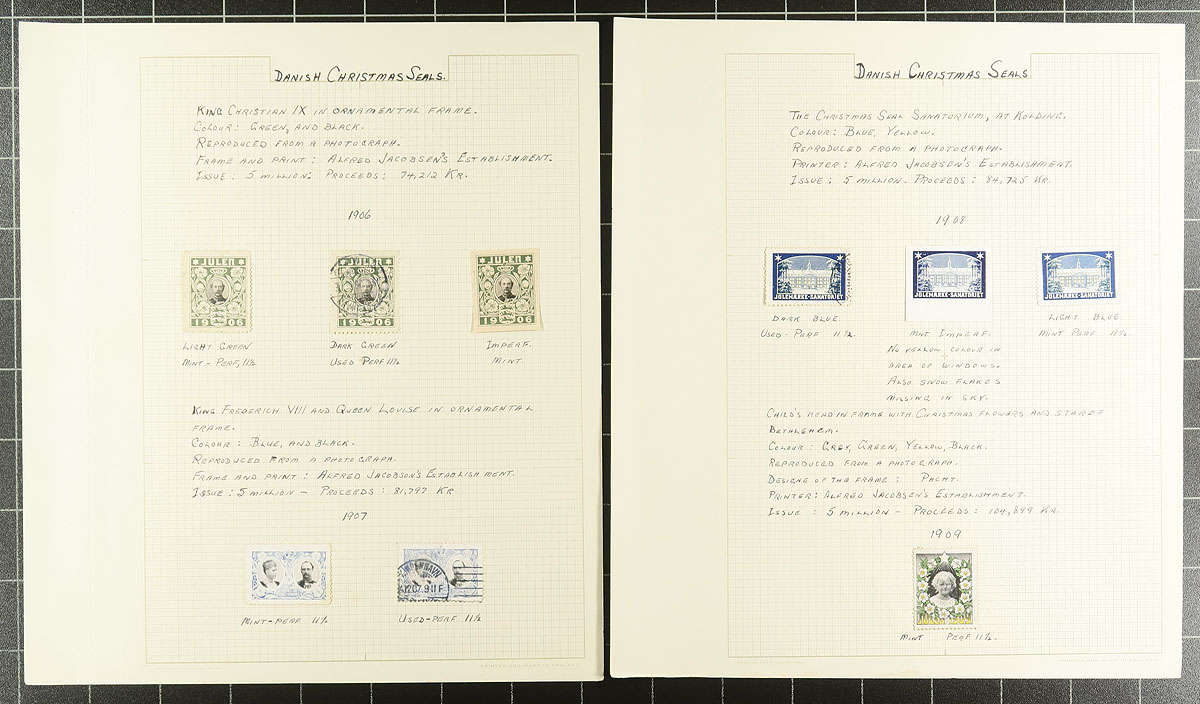 DANISH CHRISTMAS SEALS.
KING CHRISTIAN IX IN ORNAMENTAL FRAME.
COLOUR: GREEN, AND BLACK.
REPRODUCED FROM A PHOTOGRAPH.
FRAME AND PRINT: ALFRED JACOBSEN'S ESTABLISHMENT.
ISSUE: 5 MILLION: PROCEEDS: 74,212 KR.
1906
JULEN
1906
JULEN
1906
JULEN
1906
LIGHT GREEN
MINT - PERF, 11½
DARK GREEN
USED PERF 11½
IMPERF.
MINT.
KING FREDERICH VIII AND QUEEN LOUISE IN ORNAMENTAL
FRAME.
COLOUR: BLUE, AND BLACK.
REPRODUCED FROM A PHOTOGRAPH.
FRAME AND PRINT: ALFRED JACOBSON'S ESTABLISHMENT.
ISSUE: 5 MILLION — PROCEEDS: 81,797 KR
1907
MINT-PERF 11½
USED-PERF 11½
PRINTED AND MADE IN ENGLAND
DANISH CHRISTMAS SEALS
THE CHRISTMAS SEAL SANATORIUM, AT KOLDING.
COLOUR: BLUE, YELLOW.
REPRODUCED FROM A PHOTOGRAPH.
PRINTER: ALFRED JACOBSEN'S ESTABLISHMENT.
ISSUE: 5 MILLION. PROCEEDS: 84,725 KR.
1908
JULEMÆRKE-SANATORIET
JULEMÆRKE-SANATORIET
JULEMÆRKE-SANATORIET
DARK BLUE.
USED-PERF 11½.
MINT IMPERF.
NO YELLOW COLOUR IN
AREA OF WINDOWS.
ALSO SNOW FLAKES
MISSING IN SKY.
LIGHT BLUE.
MINT PERF 11½.
CHILDS HEAD IN FRAME WITH CHRISTMAS FLOWERS AND STAR OF
BETHLEHEM.
COLOUR: GREY, GREEN, YELLOW, BLACK.
REPRODUCED FROM A PHOTOGRAPH.
DESIGNE OF THE FRAME: PACHT.
PRINTER: ALFRED JACOBSEN'S ESTABLISHMENT.
ISSUE: 5 MILLION - PROCEEDS: 104,899 KR.
1909
MINT PERF 11½.
PRINTED AND MADE IN ENGLAND